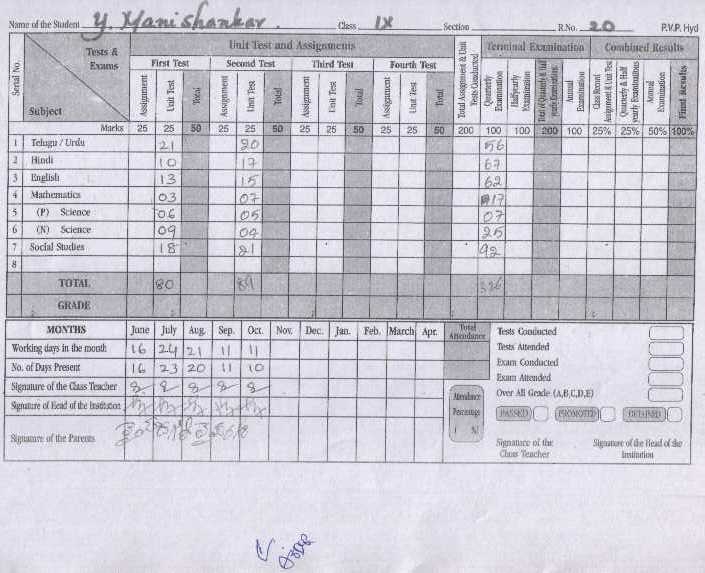 Name of the Student Y. Manishankar. Class IX Section R.No. 20 P.V.P. Hyd
Serial No. Tests & Exams Subject Unit Test and Assignments Terminal Examination Combined Results
First Test Second Test Third Test Fourth Test
Assignment Unit Test Total Assignment Unit Test Total Assignment Unit Test Total Assignment Unit Test Total Total Assignment & Unit Tests Conducted Quarterly Examination Halfyearly Examination Total of Quarterly & Half yearly Examinations Annual Examination Class Record Assignment & Unit Test Quarterly & Half yearly Examinations Annual Examination Final Results
Marks 25 25 50 25 25 50 25 25 50 25 25 50 200 100 100 200 100 25% 25% 50% 100%
1 Telugu / Urdu 21 20 56
2 Hindi 10 17 67
3 English 13 15 62
4 Mathematics 03 07 17
5 (P) Science 06 05 07
6 (N) Science 09 04 25
7 Social Studies 18 21 92
8
TOTAL 80 89 326
GRADE
MONTHS June July Aug. Sep. Oct. Nov. Dec. Jan. Feb. March Apr. Total Attendance
Working days in the month 16 24 21 11 11
No. of Days Present 16 23 20 11 10
Signature of the Class Teacher
Signature of Head of the Institution
Signature of the Parents
Attendance Percentage ( %)
Tests Conducted
Tests Attended
Exam Conducted
Exam Attended
Over All Grade (A,B,C,D,E)
PASSED PROMOTED DETAINED
Signature of the Class Teacher
Signature of the Head of the Institution